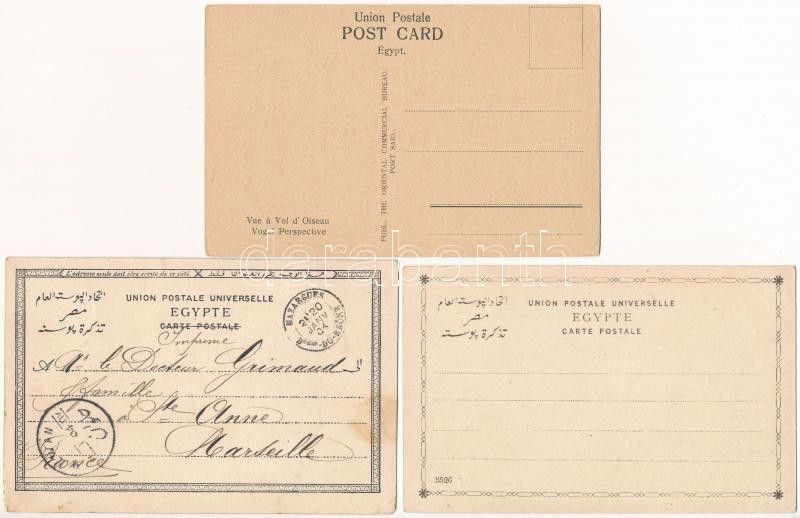 Union Postale
POST CARD
Egypt.
PUBL. THE ORIENTAL COMMERCIAL BUREAU.
PORT SAID.
Vue à Vol d'Oiseau
Voge Perspective
darabanth
L'adresse seule doit être écrite de ce côté.
اتحاد البوستة العام
مصر
تذكرة بوسته
UNION POSTALE UNIVERSELLE
EGYPTE
CARTE POSTALE
Imprimé
MAZARGUES
20
JANV
04
Bches-DU-RHÔNE
A Mr le Docteur Grimaud
& famille
à Ste Anne
Marseille
France
اتحاد البوستة العام
مصر
تذكرة بوسته
UNION POSTALE UNIVERSELLE
EGYPTE
CARTE POSTALE
8526